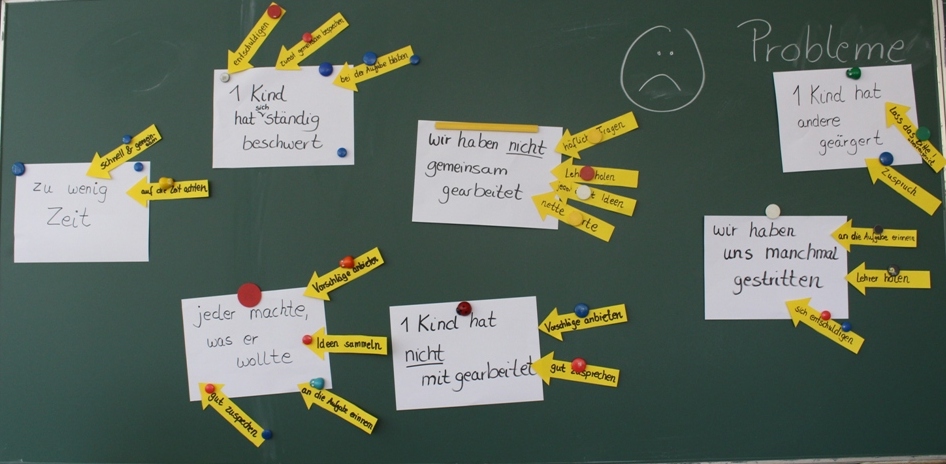 Probleme
zu wenig
Zeit
schnell &
auf die Zeit achten
1 Kind
hat sich ständig
beschwert
entschuldigen
zuerst gemeinsam besprechen
bei der Aufgabe bleiben
wir haben nicht
gemeinsam
gearbeitet
höflich fragen
Lehrer holen
Ideen
nette Worte
1 Kind hat
andere
geärgert
lass das bitte!
Zuspruch
wir haben
uns manchmal
gestritten
an die Aufgabe erinnern
Lehrer holen
sich entschuldigen
jeder machte,
was er
wollte
Vorschläge anbieten
Ideen sammeln
an die Aufgabe erinnern
gut zusprechen
1 Kind hat
nicht
mit gearbeitet
Vorschläge anbieten
gut zusprechen